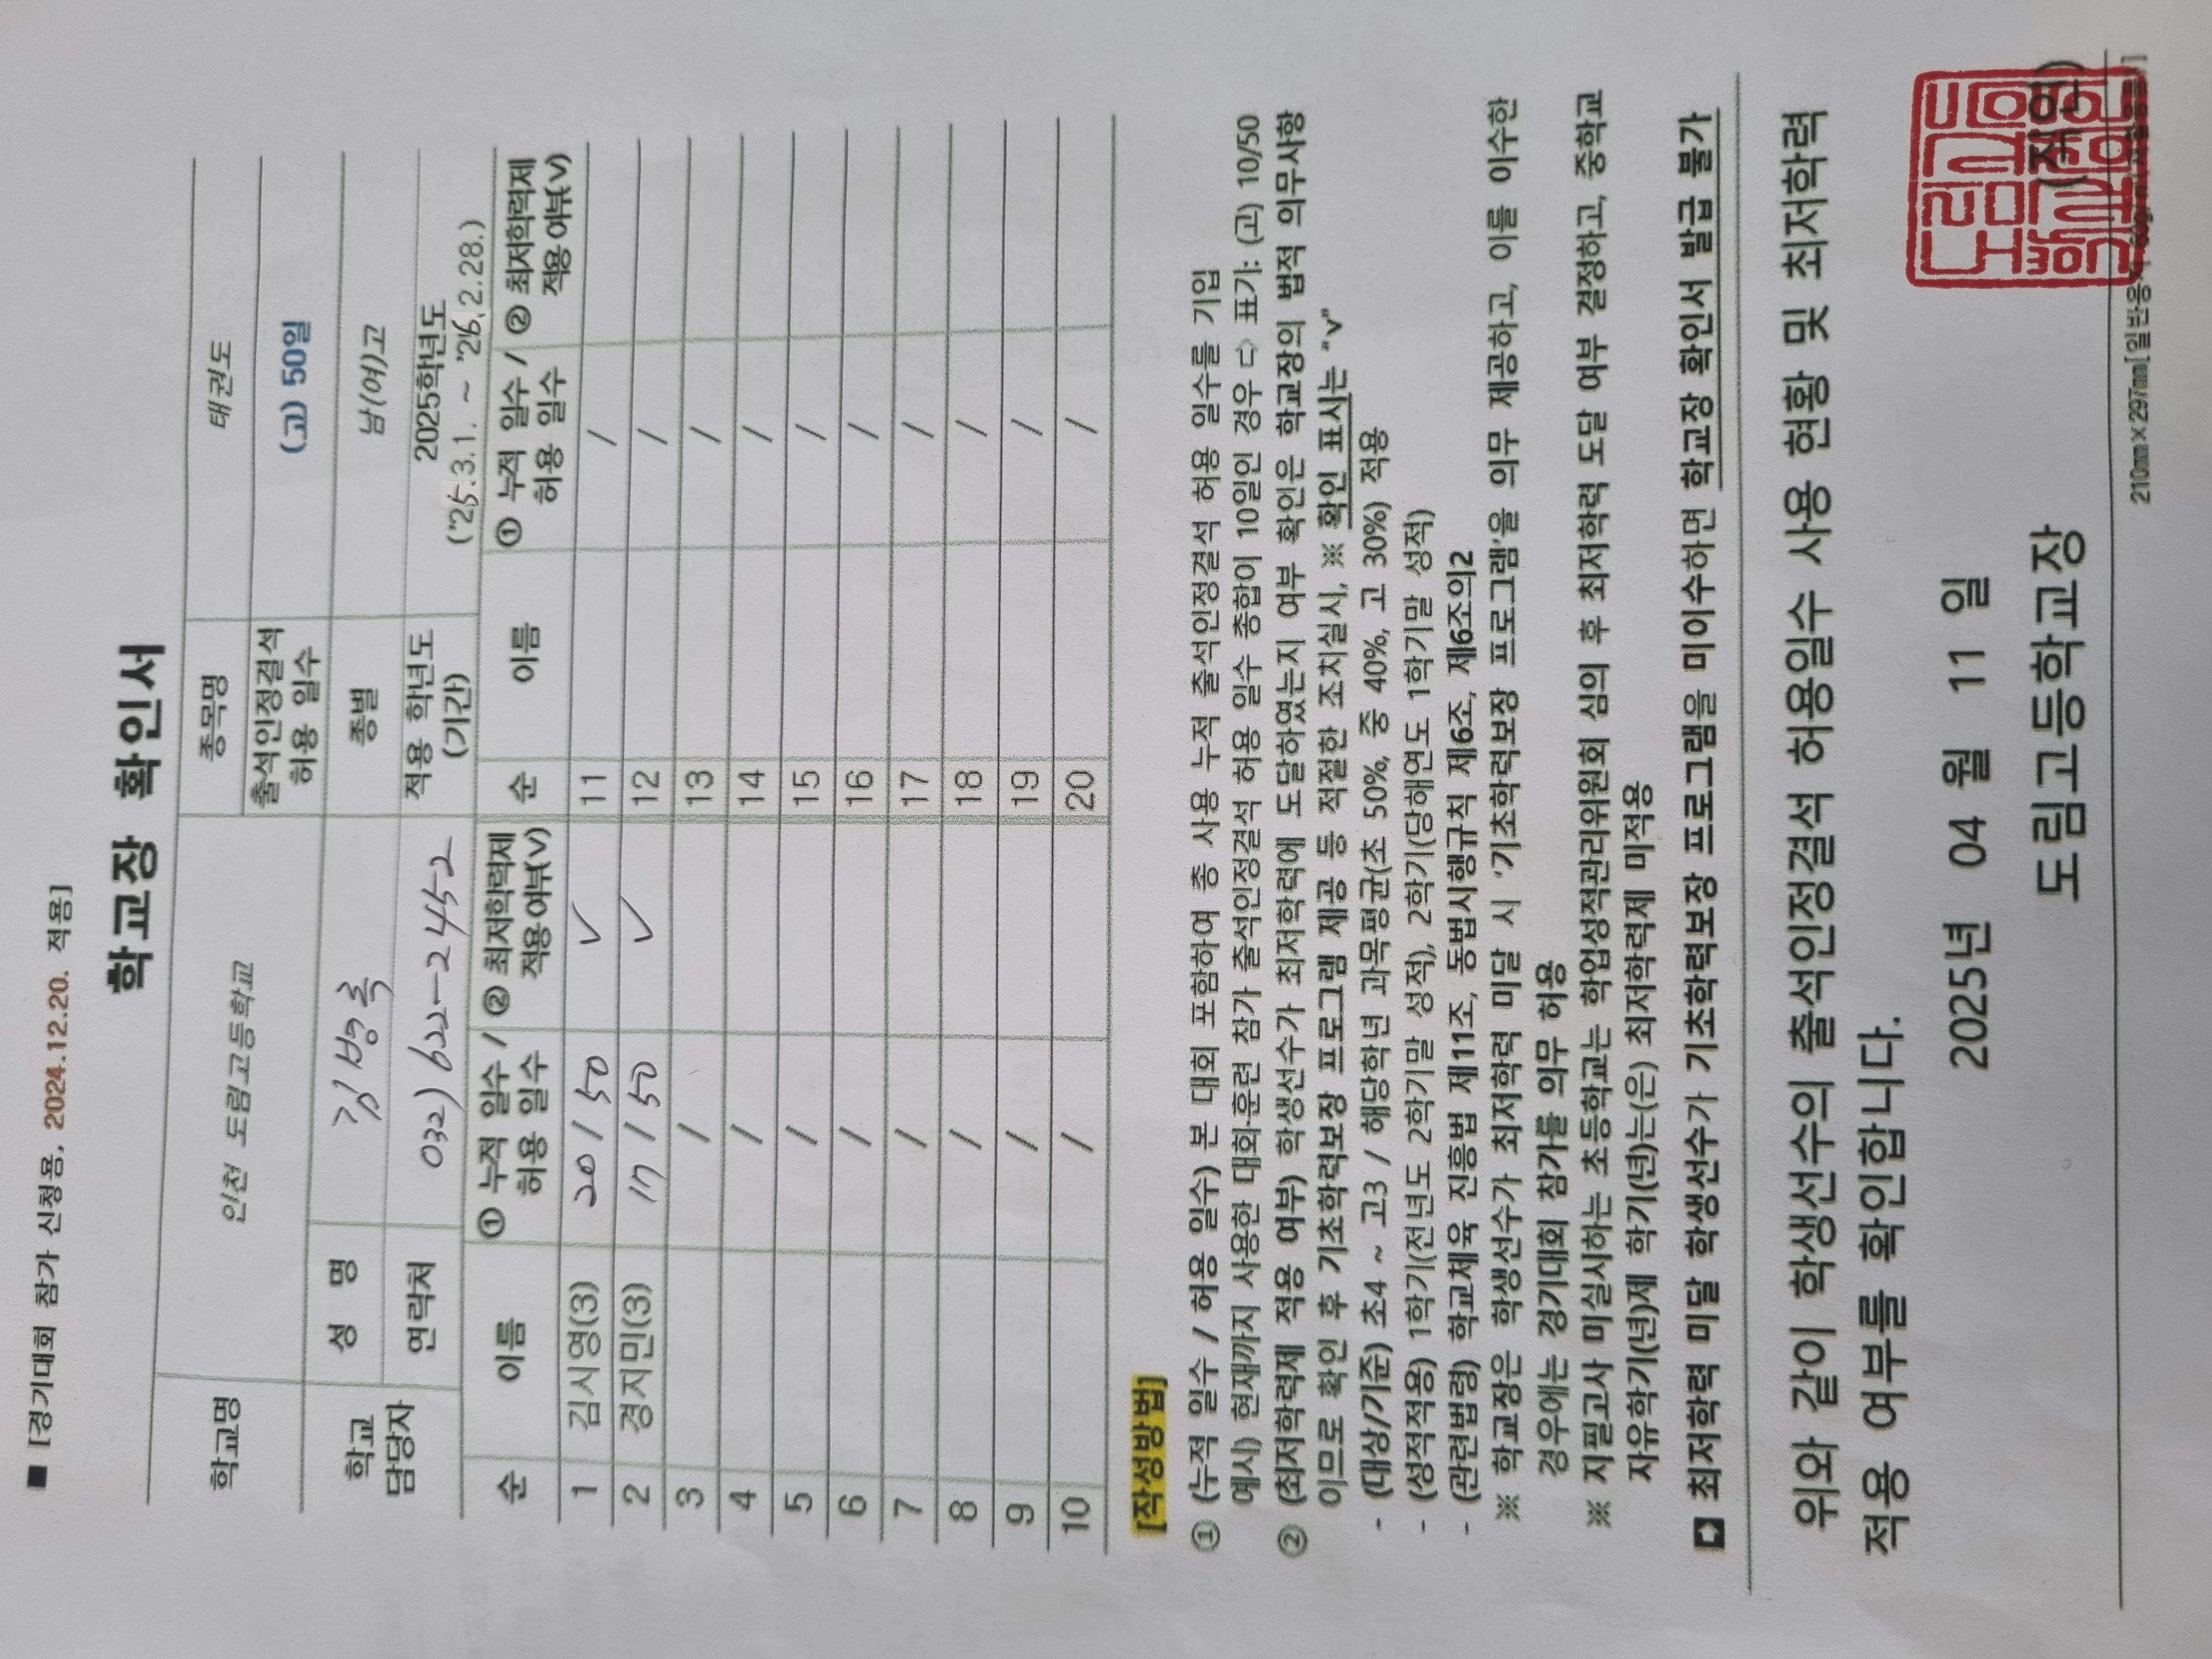 ■ [경기대회 참가 신청용, 2024.12.20. 적용]
학교장 확인서
학교명 인천 도림고등학교 종목명 태권도
출석인정결석 허용 일수 (고) 50일
학교 담당자 성 명 김병록 종별 남(여)고
연락처 032) 622-2452 적용 학년도 (기간) 2025학년도 ('25.3.1. ~ '26.2.28.)
순 이름 ① 누적 일수 / 허용 일수 ② 최저학력제 적용여부(v) 순 이름 ① 누적 일수 / 허용 일수 ② 최저학력제 적용여부(v)
1 김시영(3) 20 / 50 ✓ 11 /
2 경지민(3) 17 / 50 ✓ 12 /
3 / 13 /
4 / 14 /
5 / 15 /
6 / 16 /
7 / 17 /
8 / 18 /
9 / 19 /
10 / 20 /
[작성방법]
① (누적 일수 / 허용 일수) 본 대회 포함하여 총 사용 누적 출석인정결석 허용 일수를 기입
예시) 현재까지 사용한 대회·훈련 참가 출석인정결석 허용 일수 총합이 10일인 경우 ⇨ 표기: (고) 10/50
② (최저학력제 적용 여부) 학생선수가 최저학력에 도달하였는지 여부 확인은 학교장의 법적 의무사항
이므로 확인 후 기초학력보장 프로그램 제공 등 적절한 조치실시, ※ 확인 표시는 "v"
- (대상/기준) 초4 ~ 고3 / 해당학년 과목평균(초 50%, 중 40%, 고 30%) 적용
- (성적적용) 1학기(전년도 2학기말 성적), 2학기(당해연도 1학기말 성적)
- (관련법령) 학교체육 진흥법 제11조, 동법시행규칙 제6조, 제6조의2
※ 학교장은 학생선수가 최저학력 미달 시 '기초학력보장 프로그램'을 의무 제공하고, 이를 이수한
경우에는 경기대회 참가를 의무 허용
※ 지필고사 미실시하는 초등학교는 학업성적관리위원회 심의 후 최저학력 도달 여부 결정하고, 중학교
자유학기(년)제 학기(년)는(은) 최저학력제 미적용
◘ 최저학력 미달 학생선수가 기초학력보장 프로그램을 미이수하면 학교장 확인서 발급 불가
위와 같이 학생선수의 출석인정결석 허용일수 사용 현황 및 최저학력
적용 여부를 확인합니다.
2025년 04 월 11 일
도림고등학교장 (직인)
210㎜×297㎜[일반용